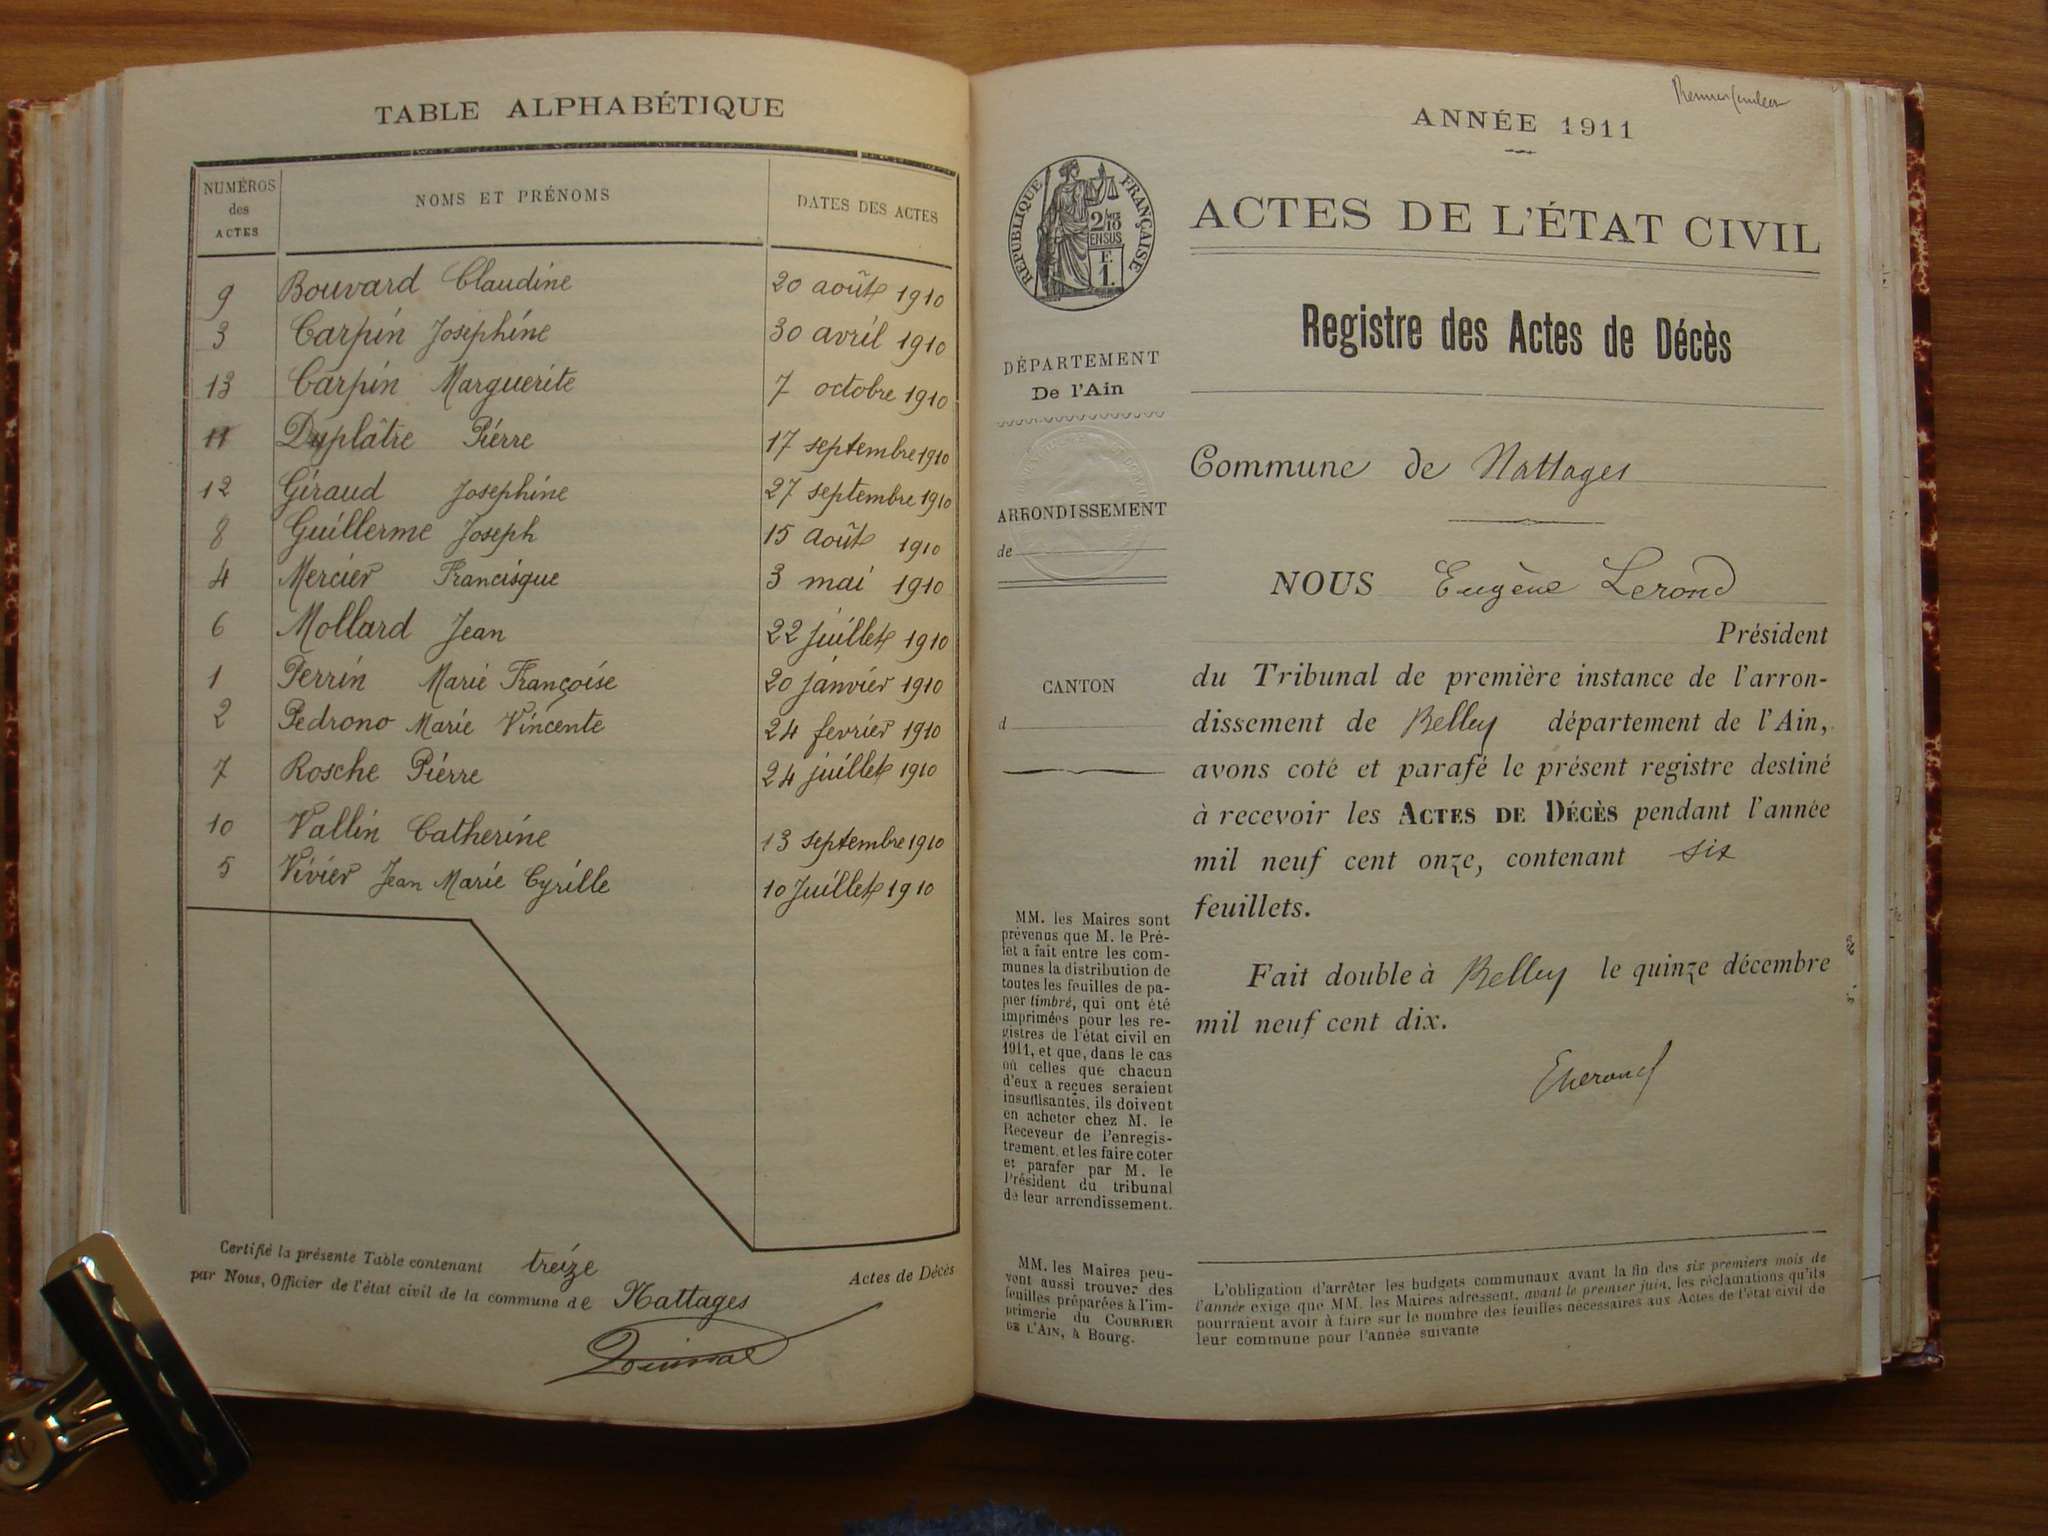 TABLE ALPHABÉTIQUE
NUMÉROS des ACTES
NOMS ET PRÉNOMS
DATES DES ACTES
9 Bouvard Claudine 20 août 1910
3 Carpin Joséphine 30 avril 1910
13 Carpin Marguerite 7 octobre 1910
11 Duplâtre Pierre 17 septembre 1910
12 Giraud Josephine 27 septembre 1910
8 Guillerme Joseph 15 août 1910
4 Mercier Francisque 3 mai 1910
6 Mollard Jean 22 juillet 1910
1 Perrin Marie Françoise 20 janvier 1910
2 Pedrono Marie Vincente 24 fevrier 1910
7 Rosche Pierre 24 juillet 1910
10 Vallin Catherine 13 septembre 1910
5 Vivier Jean Marie Cyrille 10 Juillet 1910
Certifié la présente Table contenant treize Actes de Décès
par Nous, Officier de l'état civil de la commune de Nattages
Premier
ANNÉE 1911
RÉPUBLIQUE FRANÇAISE
2/10 EN SUS
F.
1.
ACTES DE L'ÉTAT CIVIL
Registre des Actes de Décès
DÉPARTEMENT
De l'Ain
Commune de Nattages
ARRONDISSEMENT
de
NOUS Eugène Lerond
Président
CANTON
d
du Tribunal de première instance de l'arron-
dissement de Belley département de l'Ain,
avons coté et parafé le présent registre destiné
à recevoir les ACTES DE DÉCÈS pendant l'année
mil neuf cent onze, contenant six
feuillets.
Fait double à Belley le quinze décembre
mil neuf cent dix.
ELerond
MM. les Maires sont
prévenus que M. le Pré-
fet a fait entre les com-
munes la distribution de
toutes les feuilles de pa-
pier timbré, qui ont été
imprimées pour les re-
gistres de l'état civil en
1911, et que, dans le cas
où celles que chacun
d'eux a reçues seraient
insuffisantes, ils doivent
en acheter chez M. le
Receveur de l'enregis-
trement, et les faire coter
et parafer par M. le
Président du tribunal
de leur arrondissement.
MM. les Maires peu-
vent aussi trouver des
feuilles préparées à l'im-
primerie du COURRIER
DE L'AIN, à Bourg.
L'obligation d'arrêter les budgets communaux avant la fin des six premiers mois de
l'année exige que MM. les Maires adressent, avant le premier juin, les réclamations qu'ils
pourraient avoir à faire sur le nombre des feuilles nécessaires aux Actes de l'état civil de
leur commune pour l'année suivante